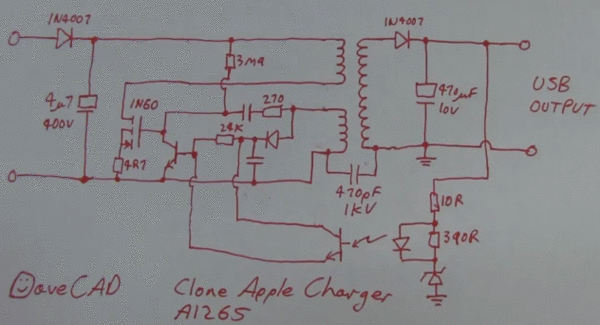 1N4007
1N4007
3MΩ
4μ7
400V
1N60
270
470μF
10V
USB
OUTPUT
24K
4R7
470pF
1KV
10R
390R
DaveCAD
Clone Apple Charger
A1265